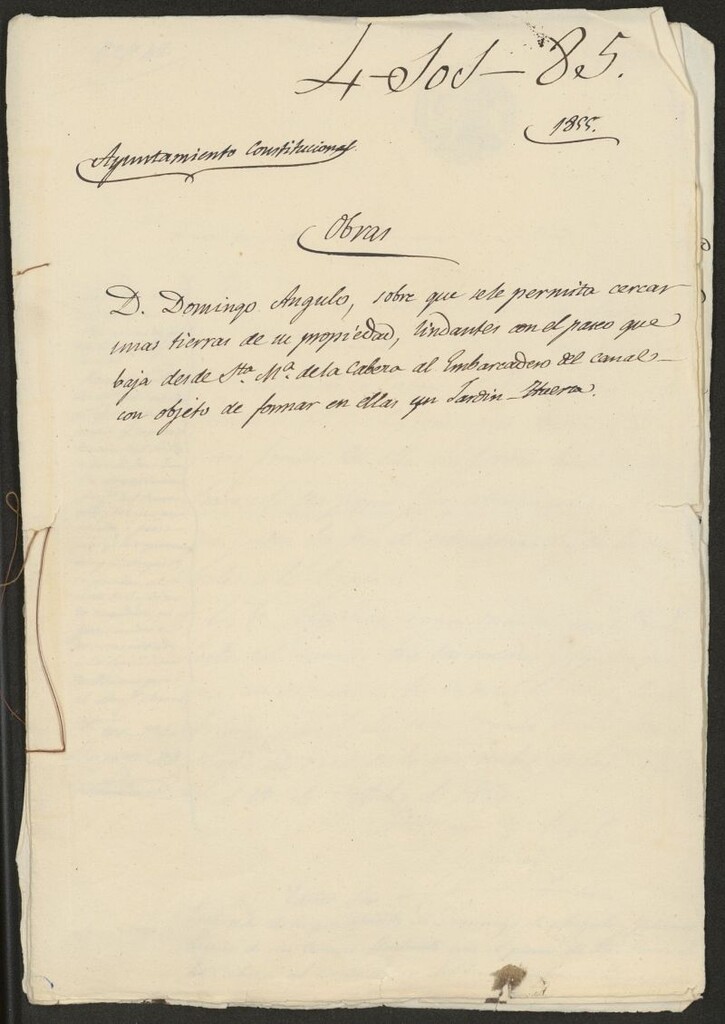 4-Sos-85.
1855.
Ayuntamiento Constitucional.
Obras
D. Domingo Angulo, sobre que se le permita cercar
unas tierras de su propiedad, lindantes con el paseo que
baja desde Sta. Ma. de la Cabeza al Embarcadero del canal
con objeto de formar en ellas un Jardin-Huerta.